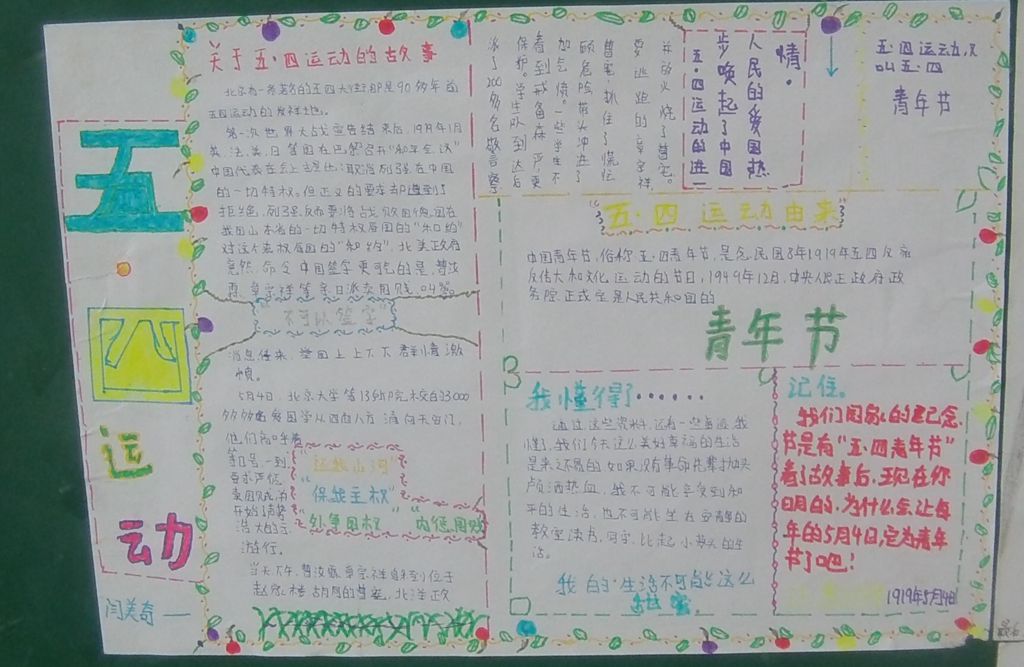 五
四
运
动
闫美奇
关于五·四运动的故事
北京有一条著名的五四大街即是90多年前
五四运动的发祥地。
第一次世界大战宣告结束后,1919年1月
英、法、美、日等国在巴黎召开"和平会议"
中国代表在会上
的一切特权,但正义的要求却遭到了
拒绝,列强反而要将战败国德国在
我国山东省的一切特权
对这
竟然命令中国签字更可气的是,曹汝
霖,章宗祥等亲日派卖国贼
"不可以签字"
消息传来,举国上上下下群情激
愤。
5月4日,北京大学等13所院校的3000
多多名爱国学从四面八方涌向天安门,
他们高呼着
"还我山河"
"保我主权"
"外争国权" "内惩国贼"
开始了声势
浩大的示
游行。
当天下午,曹汝霖,章宗祥躲到位于
赵家楼胡同的曹宅,北洋政
派了200多名警察
保护。学生队到达后
看到戒备森严,更
加气愤。一些学生不
顾危险带头冲进了
曹宅抓住了慌忙
要逃跑的章宗祥
并放火烧了曹宅。
五·四运动的进一
步唤起了中国
人民的爱国热
情。
五·四运动,又
叫五·四
青年节
"五·四运动由来"
中国青年节,俗称五·四青年节,是念民国8年1919年五四反帝
反伟大和文化运动的节日,1949年12月,中央人民正政府政
务院正式定是人民共和国的
青年节
我懂得了······
通过这些资料,还有一些电视,我
懂,我们今天这么美好幸福的生活
是来之不易的,如果没有革命先辈抛头
颅洒热血,我不可能享受到和
平的生活,也不可能坐在安静的
教室读书,同学,比起小英头的生
活。
我的·生活不可能这么
甜蜜。
记住。
我们国家的纪念
节是有"五·四青年节"
看了故事后,现在你
明白,为什么会让每
年的5月4日,定为青年
节了吧!
1919年5月4日